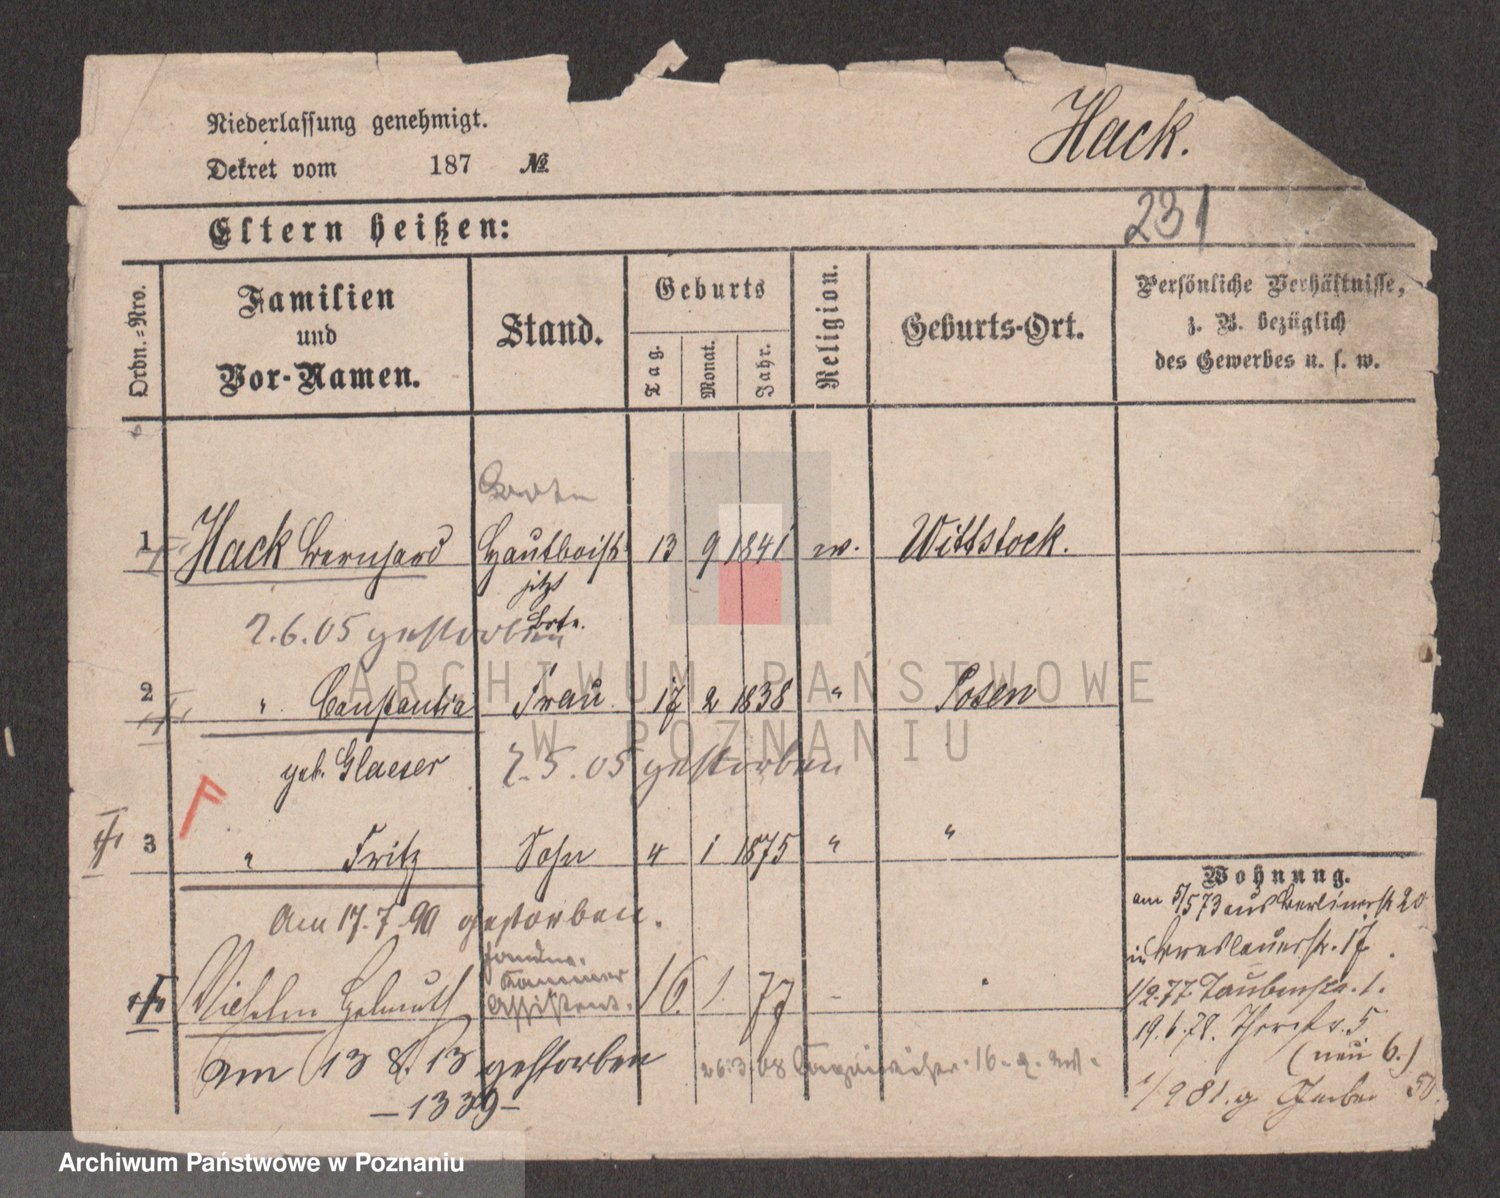 Niederlassung genehmigt.
Dekret vom 187 №
Hack.
231
Eltern heißen:
Ordn.-Nro.
Familien und Vor-Namen.
Stand.
Geburts
Tag. Monat. Jahr.
Religion.
Geburts-Ort.
Persönliche Verhältnisse, z. B. bezüglich des Gewerbes u. s. w.
Bote
1 Hack Bernhard Hautboist 13 9 1841 ev. Wittstock.
jetzt
Bote.
2.6.05 gestorben
2 " Constantia Frau 17 2 1838 " Posen
geb. Glaeser 2.5.05 gestorben
F
3 " Fritz Sohn 4 1 1875 " "
Am 17.7.90 gestorben.
Wilhelm Helmuth Kammer Assistent. 16. 1. 77
am 13 8. 13 gestorben
26.3.08 16
-1339-
Wohnung.
am 5/5 73 aus Berlinerstr 20
in Breslauerstr. 17.
1/2.77 Taubenstr. 1.
19.6.78. 5
(neu 6.)
1/9 81. 50.
ARCHIWUM PAŃSTWOWE
W POZNANIU
Archiwum Państwowe w Poznaniu